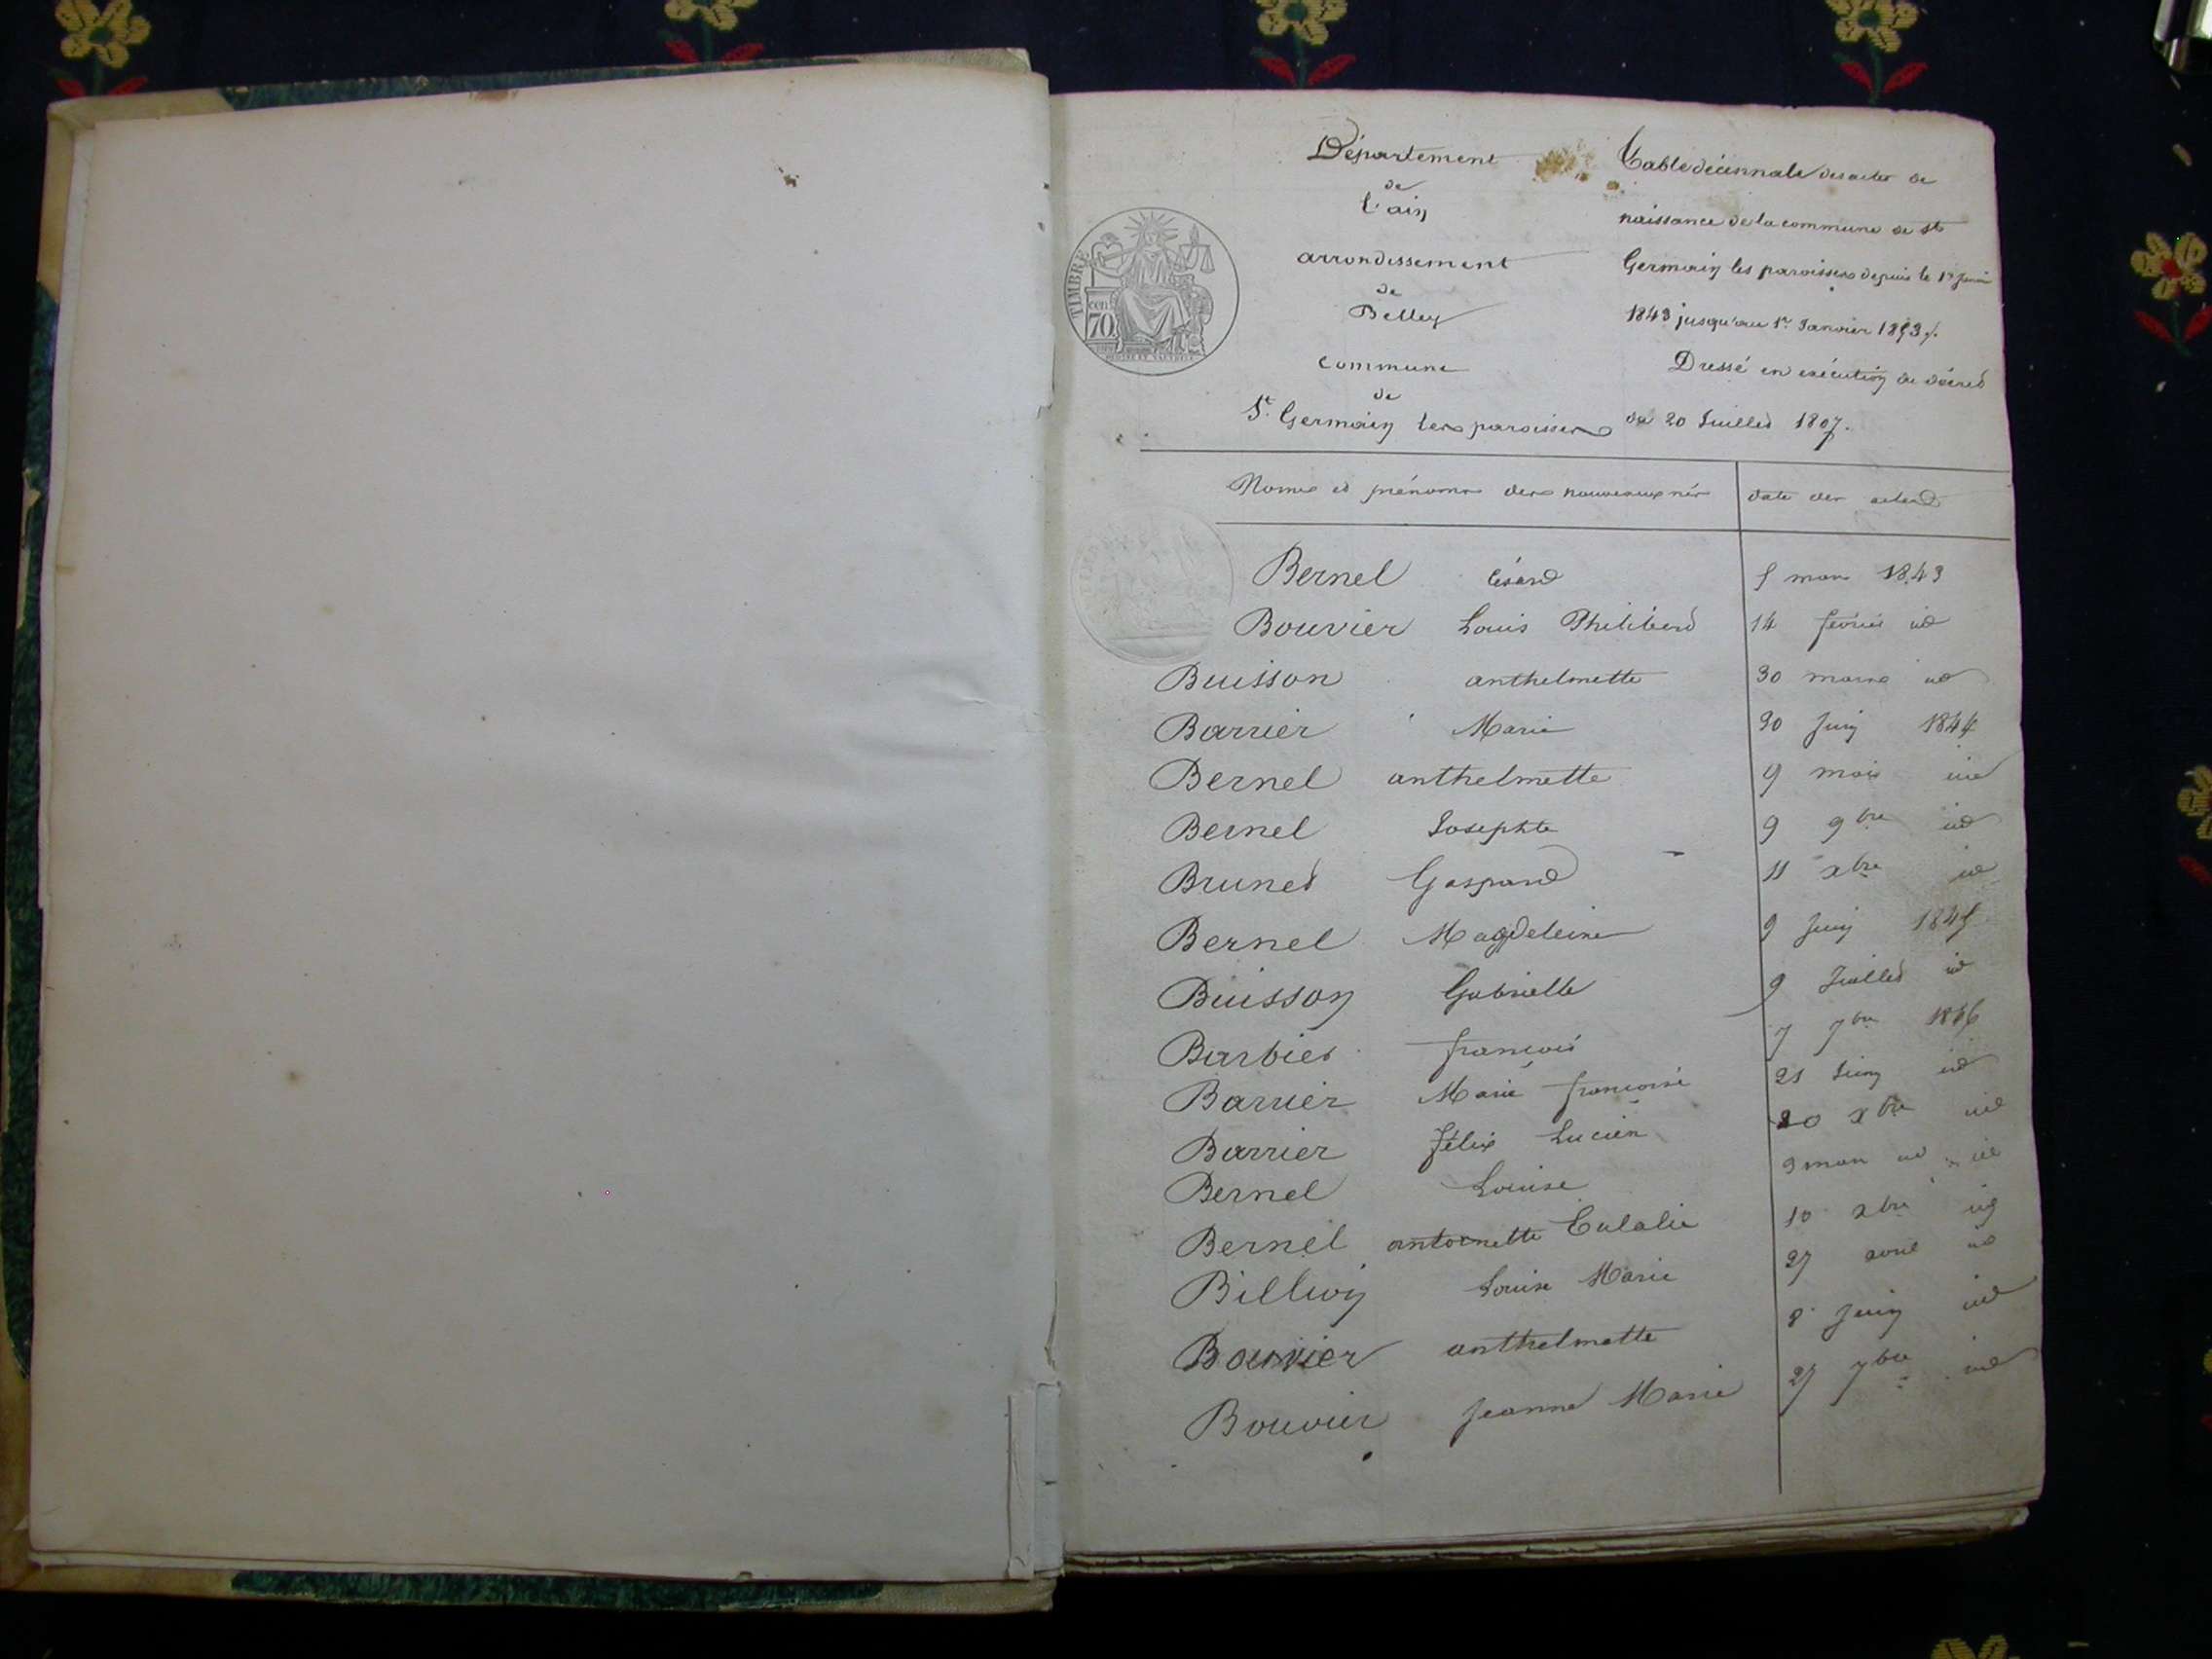 Département
de
l'ain
arrondissement
de
Belley
commune
de
St. Germain les paroisses
Table décennale des actes de
naissance de la commune de St
Germain les paroisses depuis le 1er Janvier
1843 jusqu'au 1er Janvier 1853.
Dressé en exécution du décret
du 20 Juillet 1807.
TIMBRE
cen
70
Noms et prénoms des nouveaux nés date des actes
Bernel Césard 5 mars 1843
Bouvier Louis Philiberd 14 février id
Buisson anthelmette 30 mars id
Barrier Marie 30 Juin 1844
Bernel anthelmette 9 mars id
Bernel Josephte 9 9bre id
Brunet Gaspard 11 xbre id
Bernel Magdeleine 9 Juin 1845
Buisson Gabrielle 9 Juillet id
Barbier françois 7 7bre 1846
Barrier Marie françoise 21 Juin id
Barrier félix Lucien 20 xbre id
Bernel Louise 9 mars id id
Bernel antoinette Eulalie 10 xbre id
Billion Louise Marie 27 avril id
Bouvier anthelmette 8 Juin id
Bouvier Jeanne Marie 27 7bre id